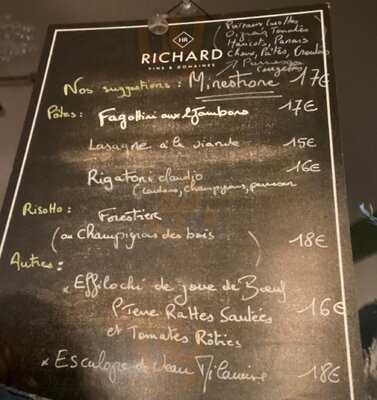 Poireaux Carottes
Oignons Tomates
Haricots, Panais
Choux, Pâtes, Croutons
Parmesan
HR
RICHARD
VINS & DOMAINES
Nos suggestions : Minestrone 17€
Pâtes : Fagottini aux 2 Jambons 17€
Lasagne à la viande 15€
Rigatoni Claudio 16€
(lardons, champignons, parmesan
Risotto : Forestier
(aux Champignons des bois) 18€
Autres :
* Effiloché de joue de Bœuf
Rattes Sautées 16€
et Tomates Rôties
* Escalope de Veau Milanaise 18€